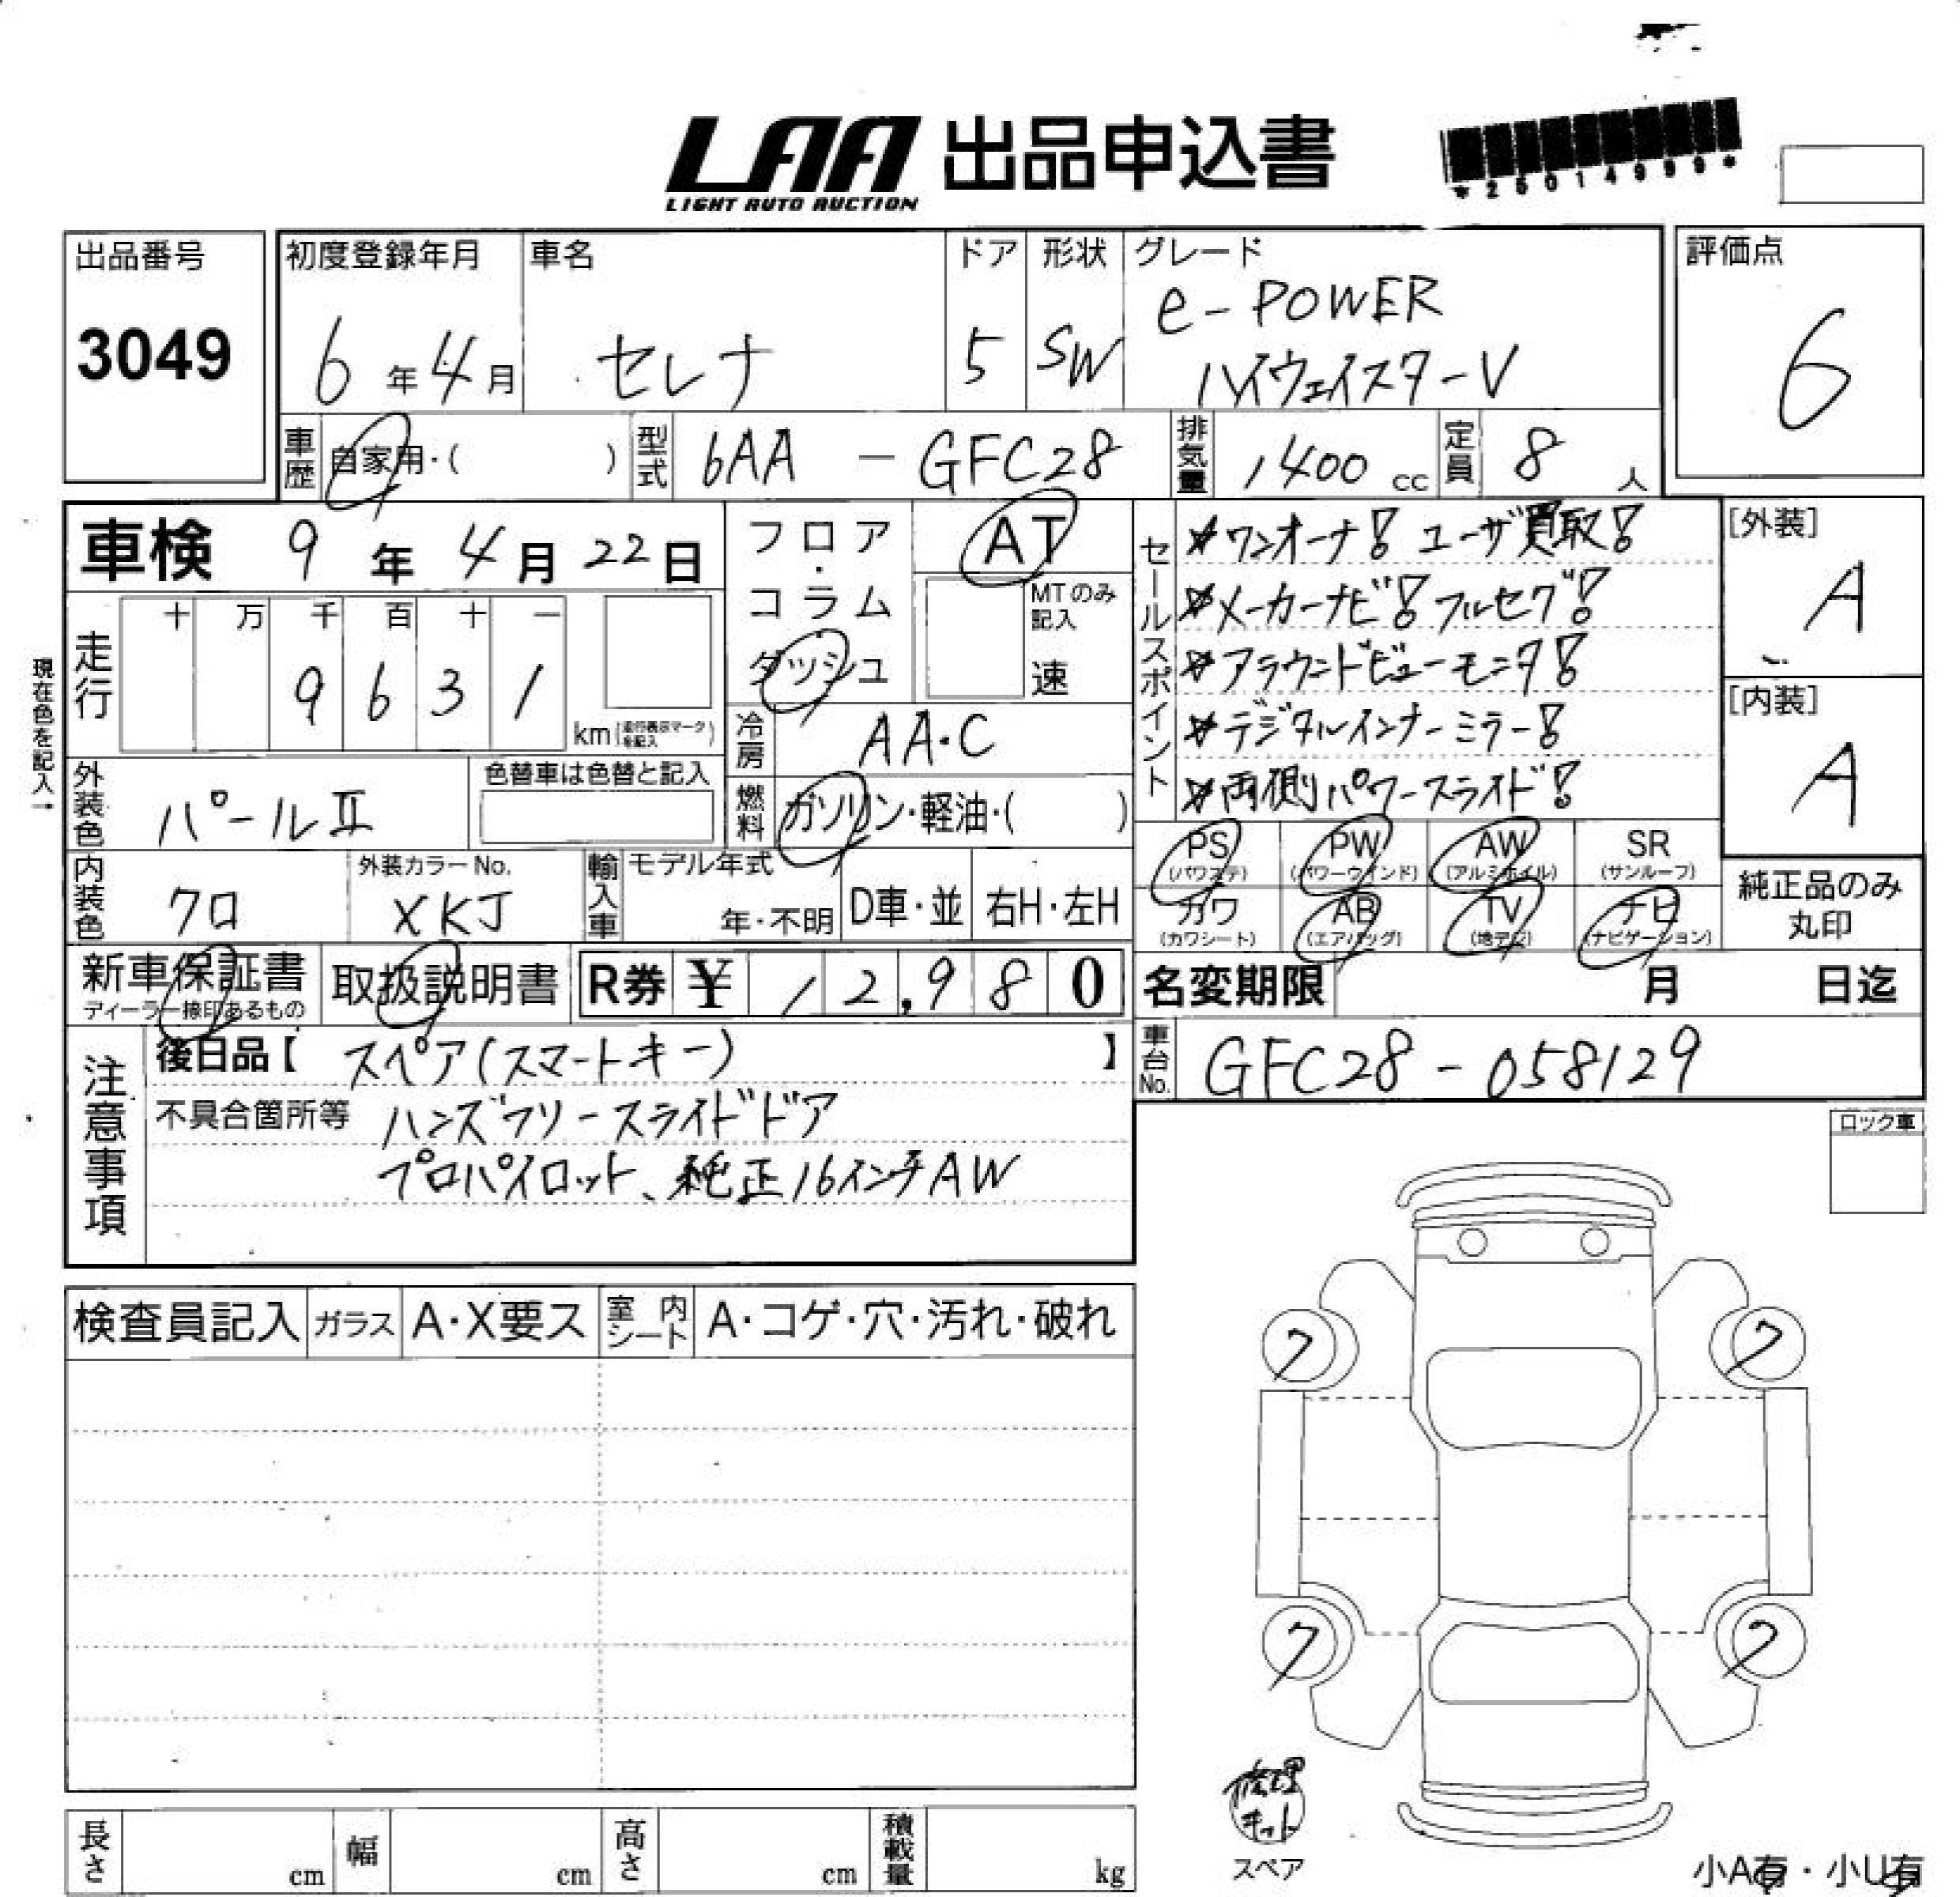 LAA 出品申込書
LIGHT AUTO AUCTION
*25014999*
出品番号
3049
初度登録年月
6年4月
車名
セレナ
ドア
5
形状
SW
グレード
e-POWER
ハイウェイスターV
評価点
6
車歴
自家用・( )
型式
6AA - GFC28
排気量
1400 cc
定員
8人
車検 9年4月22日
走行
十 万 千 百 十 一
9 6 3 1
km
フロア・コラム
ダッシュ
AT
MTのみ記入
速
冷房
AA・C
燃料
ガソリン・軽油・( )
セールスポイント
ワンオーナ! ユーザ買取!
メーカーナビ! フルセグ!
アラウンドビューモニタ!
デジタルインナーミラー!
両側パワースライド!
[外装]
A
[内装]
A
現在色を記入→
外装色
パールⅡ
色替車は色替と記入
内装色
クロ
外装カラーNo.
XKJ
輸入車
モデル年式
年・不明
D車・並
右H・左H
PS
(パワステ)
PW
(パワーウインド)
AW
(アルミホイル)
SR
(サンルーフ)
カワ
(カワシート)
AB
(エアバッグ)
TV
(地デジ)
ナビ
(ナビゲーション)
純正品のみ
丸印
新車保証書
ディーラー捺印あるもの
取扱説明書
R券 ¥ 12,980
名変期限 月 日迄
車台No.
GFC28-058129
注意事項
後日品【 スペア(スマートキー) 】
不具合箇所等 ハンズフリースライドドア
プロパイロット、純正16インチAW
ロック車
検査員記入
ガラス
A・X要ス
室内シート
A・コゲ・穴・汚れ・破れ
フ
フ
フ
フ
修理
キット
スペア
長さ cm
幅 cm
高さ cm
積載量 kg
小A有・小U有